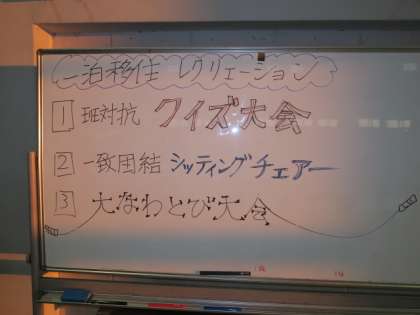 一泊移住 レクリェーション
1 班対抗 クイズ大会
2 一致団結 シッティングチェアー
3 大なわとび大会